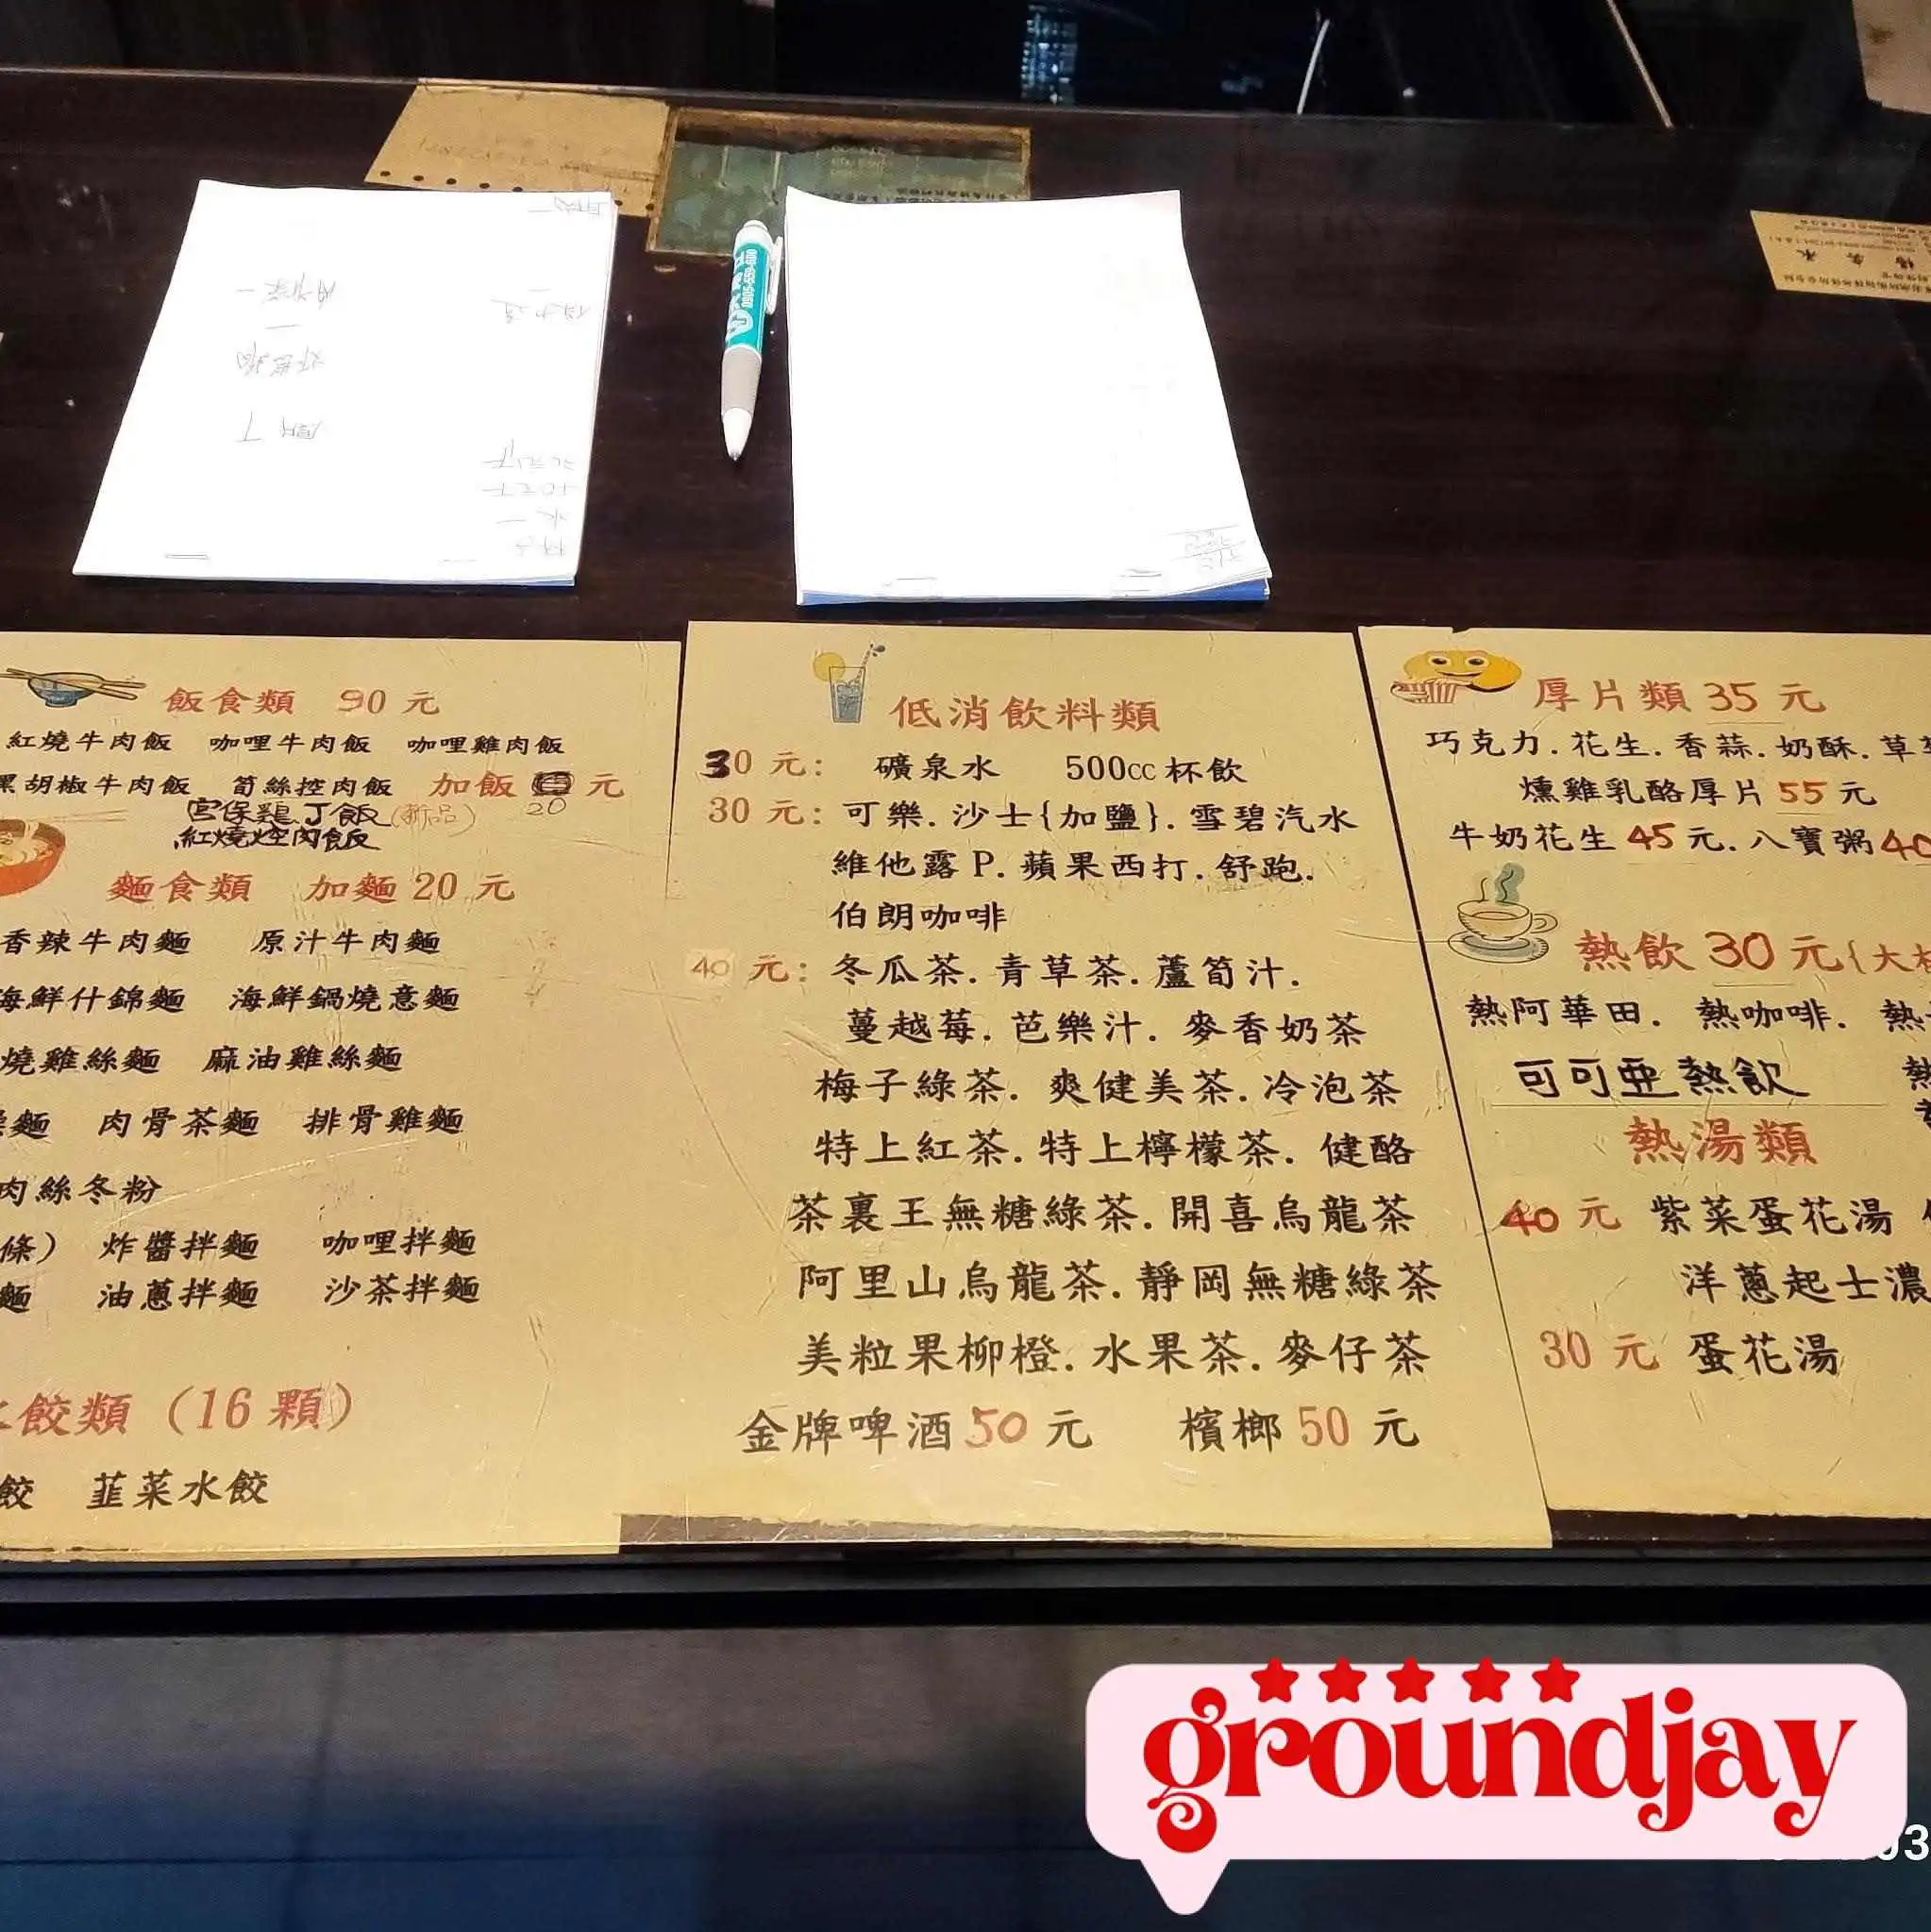 0905-559-600
飯食類 90 元
紅燒牛肉飯 咖哩牛肉飯 咖哩雞肉飯
黑胡椒牛肉飯 筍絲控肉飯 加飯 20 元
宮保雞丁飯(新品)
紅燒控肉飯
麵食類 加麵 20 元
香辣牛肉麵 原汁牛肉麵
海鮮什錦麵 海鮮鍋燒意麵
燒雞絲麵 麻油雞絲麵
麵 肉骨茶麵 排骨雞麵
肉絲冬粉
條) 炸醬拌麵 咖哩拌麵
麵 油蔥拌麵 沙茶拌麵
水餃類 (16 顆)
餃 韮菜水餃
低消飲料類
30 元: 礦泉水 500cc 杯飲
30 元: 可樂. 沙士{加鹽}. 雪碧汽水
維他露 P. 蘋果西打. 舒跑.
伯朗咖啡
40 元: 冬瓜茶. 青草茶. 蘆筍汁.
蔓越莓. 芭樂汁. 麥香奶茶
梅子綠茶. 爽健美茶. 冷泡茶
特上紅茶. 特上檸檬茶. 健酪
茶裏王無糖綠茶. 開喜烏龍茶
阿里山烏龍茶. 靜岡無糖綠茶
美粒果柳橙. 水果茶. 麥仔茶
金牌啤酒 50 元 檳榔 50 元
厚片類 35 元
巧克力. 花生. 香蒜. 奶酥. 草
燻雞乳酪厚片 55 元
牛奶花生 45 元. 八寶粥 40
熱飲 30 元{大
熱阿華田. 熱咖啡. 熱
可可亜熱飲 熱
熱湯類
40 元 紫菜蛋花湯
洋蔥起士濃
30 元 蛋花湯
groundjay